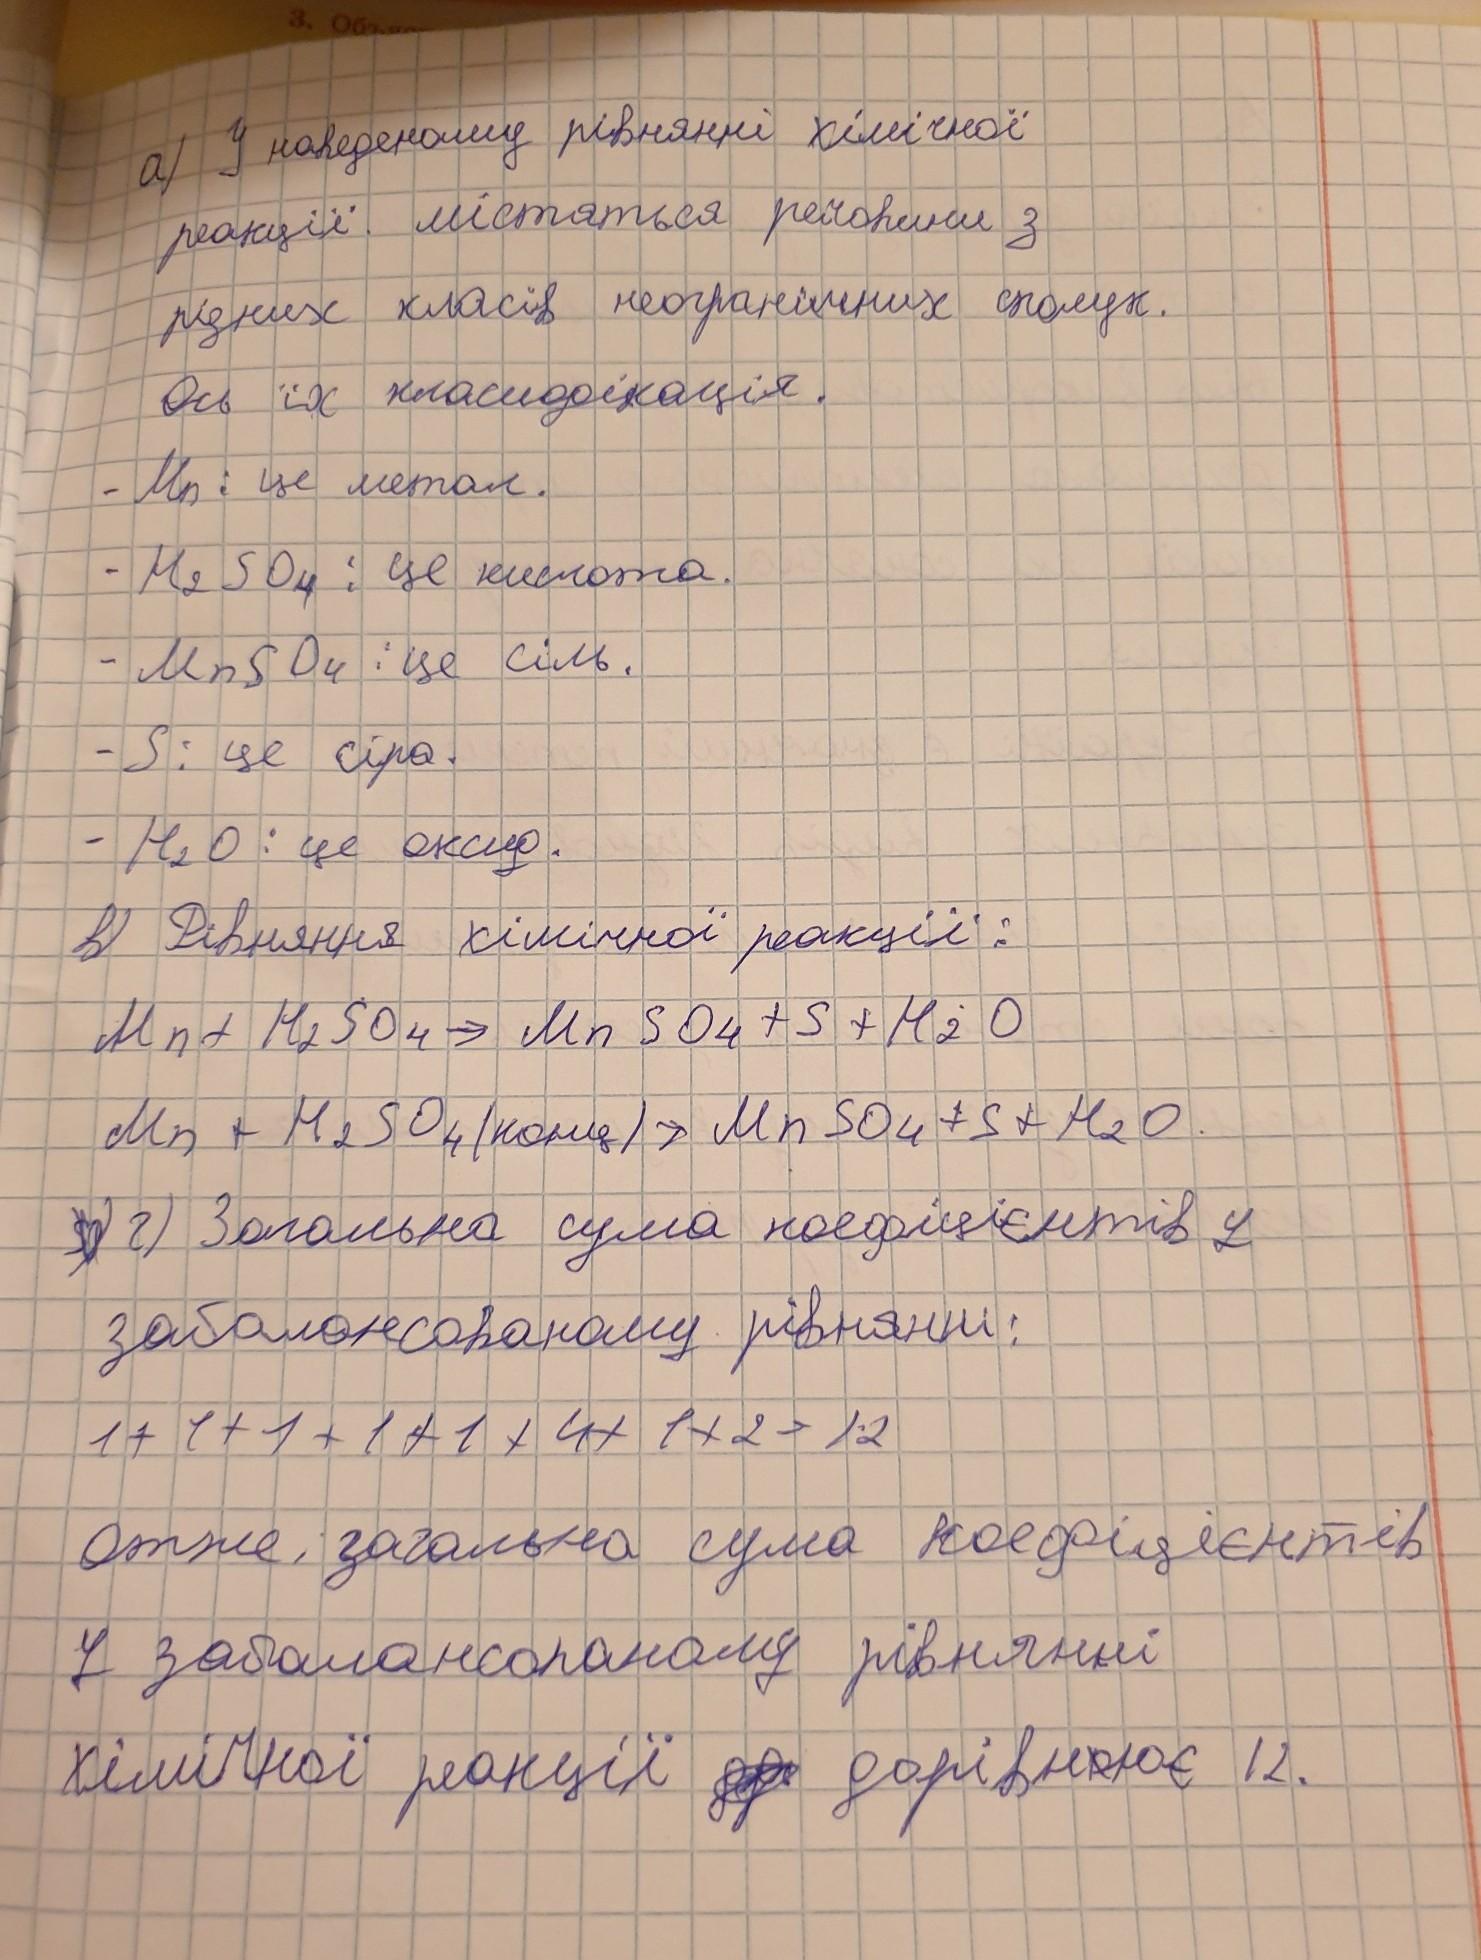 3. Объяс
а) У наведеному рівнянні хімічної
реакції. містяться речовини з
різних класів неограничних сполук.
Ось їх класифікація.
- Mn: це метал.
- H2SO4: це кислота.
- MnSO4: це сіль.
- S: це сіра.
- H2O: це оксид.
в) Рівняння хімічної реакції:
Mn + H2SO4 → MnSO4 + S + H2O
Mn + H2SO4 (конц) → MnSO4 + S + H2O.
г) Загальна сума коефіцієнтів у
забалансованому рівнянні:
1 + 1 + 1 + 1 + 1 + 4 + 1 + 2 = 12
отже, загальна сума коефіцієнтів
у забалансованому рівнянні
хімічної реакції дорівнює 12.